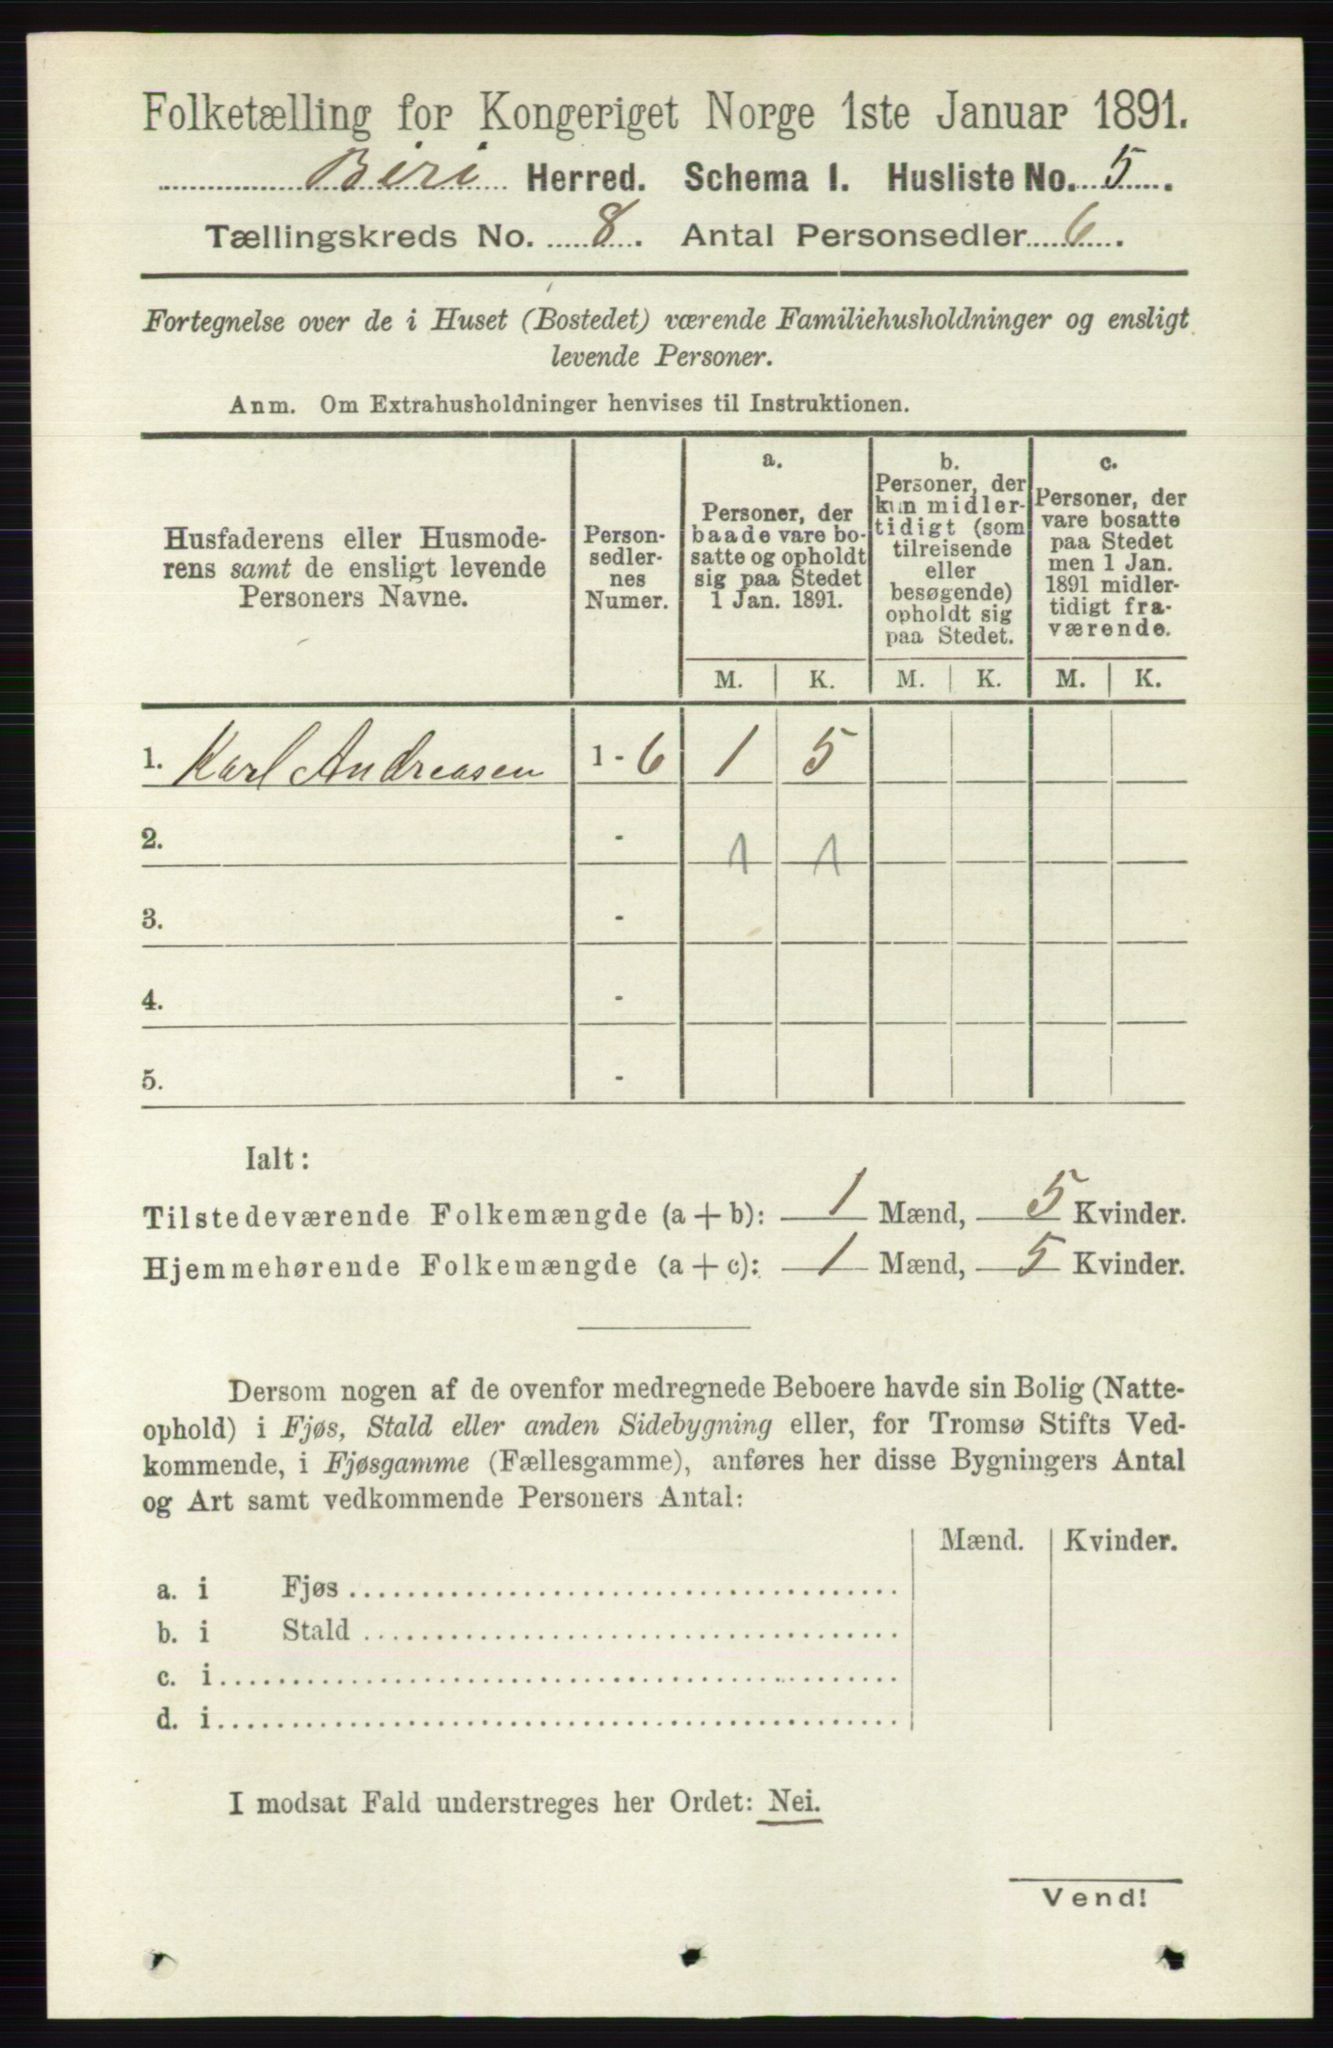 Folketælling for Kongeriget Norge 1ste Januar 1891.
Biri Herred. Schema I. Husliste No. 5.
Tællingskreds No. 8. Antal Personsedler 6.
Fortegnelse over de i Huset (Bostedet) værende Familiehusholdninger og ensligt
levende Personer.
Anm. Om Extrahusholdninger henvises til Instruktionen.
Husfaderens eller Husmode-
rens samt de ensligt levende
Personers Navne.
Person-
sedler-
nes
Numer.
a.
Personer, der
baade vare bo-
satte og opholdt
sig paa Stedet
1 Jan. 1891.
b.
Personer, der
kun midler-
tidigt (som
tilreisende
eller
besøgende)
opholdt sig
paa Stedet.
c.
Personer, der
vare bosatte
paa Stedet
men 1 Jan.
1891 midler-
tidigt fra-
værende.
M. K. M. K. M. K.
1. Karl Andreasen 1 - 6 1 5
2. - 1 1
3. -
4. -
5. -
Ialt:
Tilstedeværende Folkemængde (a + b): 1 Mænd, 5 Kvinder.
Hjemmehørende Folkemængde (a + c): 1 Mænd, 5 Kvinder.
Dersom nogen af de ovenfor medregnede Beboere havde sin Bolig (Natte-
ophold) i Fjøs, Stald eller anden Sidebygning eller, for Tromsø Stifts Ved-
kommende, i Fjøsgamme (Fællesgamme), anføres her disse Bygningers Antal
og Art samt vedkommende Personers Antal:
Mænd. Kvinder.
a. i Fjøs
b. i Stald
c. i
d. i
I modsat Fald understreges her Ordet: Nei.
Vend!